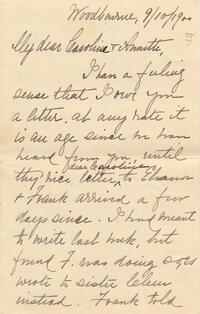 Woodbourne, 9/10/1900
My dear Caroline & Annette,
I han a feeling
sense that I owe you
a letter, at any rate it
is an age since we have
heard from you, until
dear Caroline's
this nice letter, to Eleanor
& Frank arrived a few
days since. I had meant
to write last week, but
found F. was doing so, so
wrote to sister Ellen
instead. Frank told